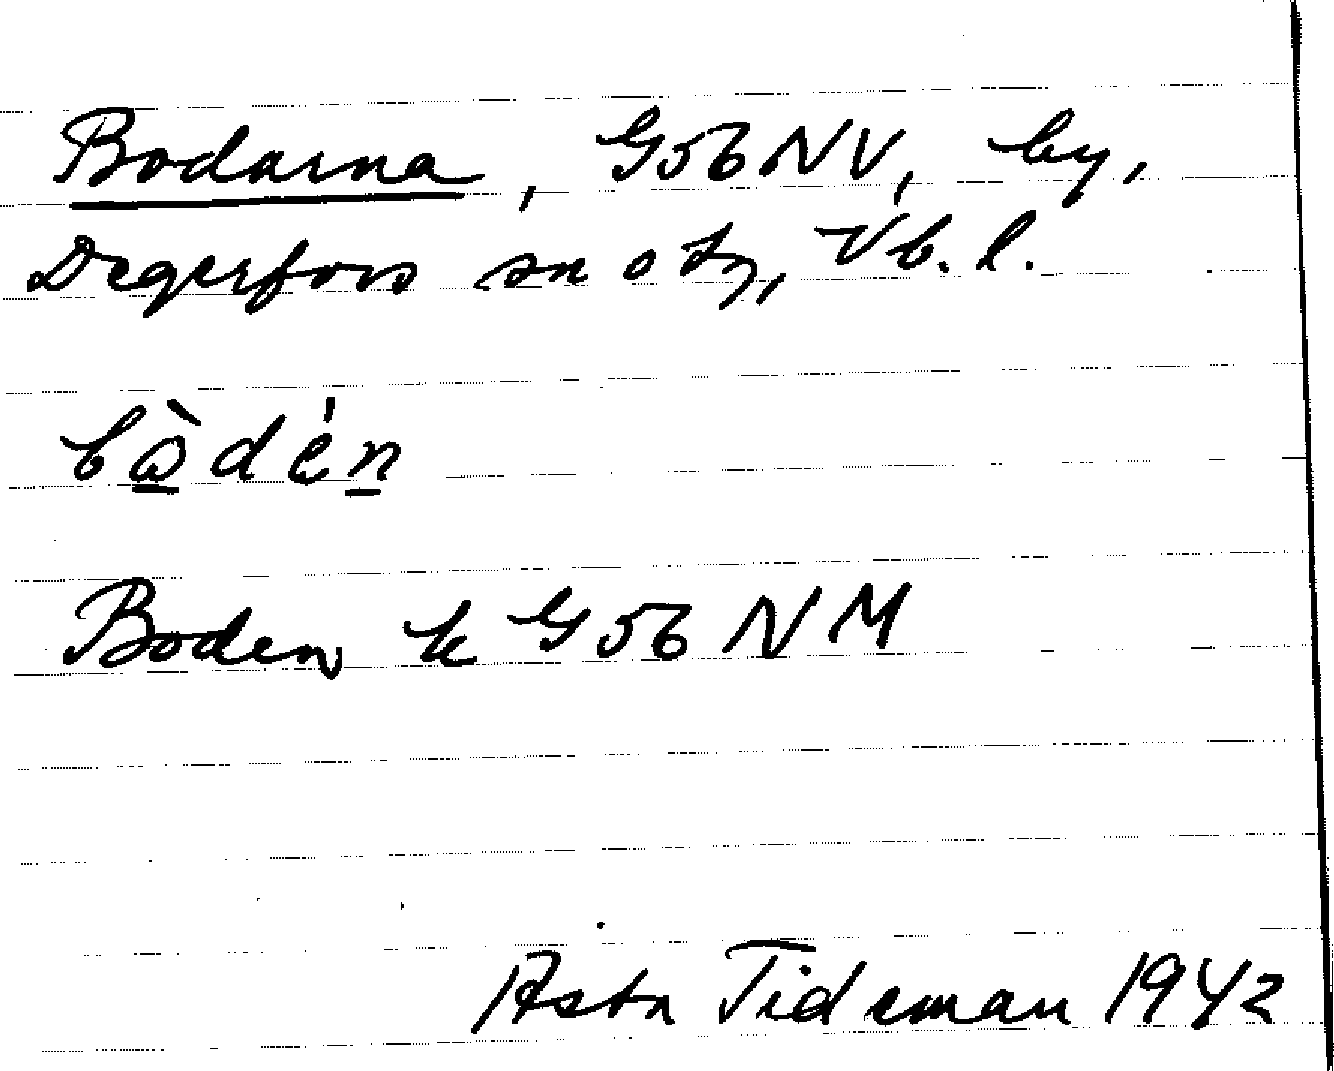 Bodarna, G56NV, by,
Degerfors sn o tg, Vb. l.
bòdén
Boden k G56 NM
Asta Tideman 1942